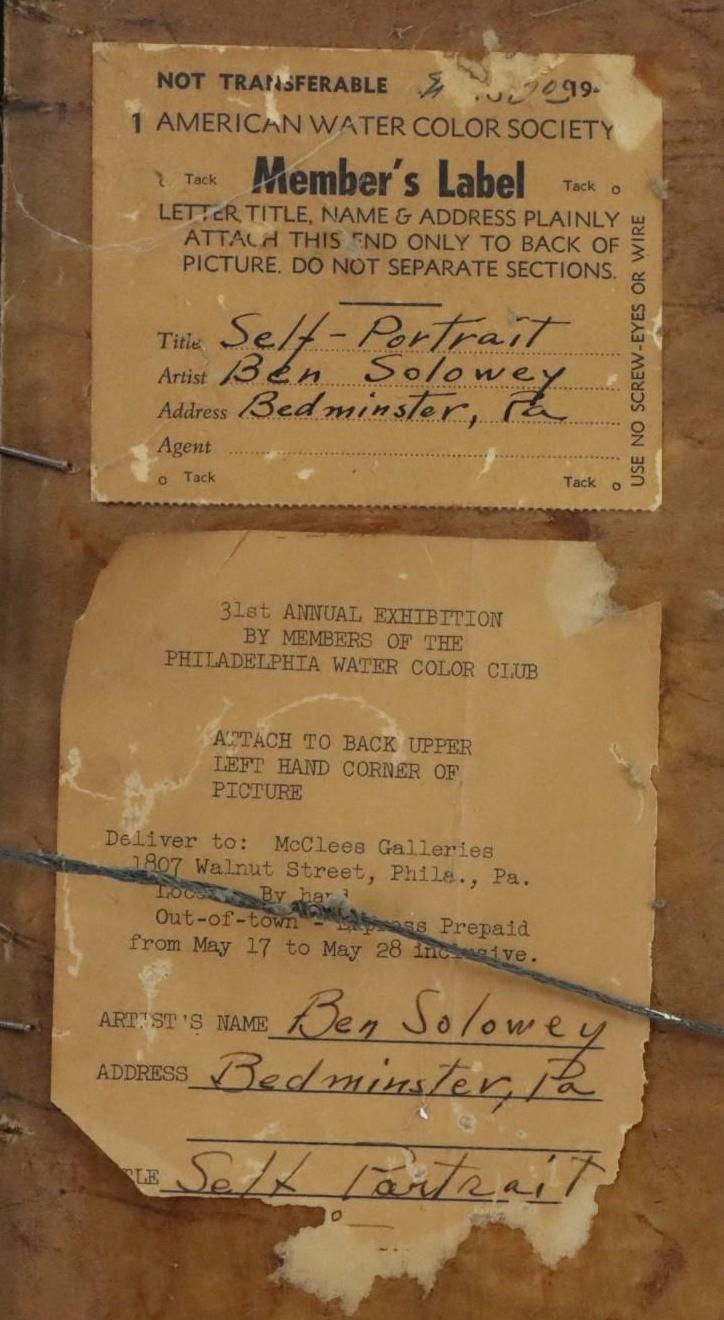 NOT TRANSFERABLE
1 AMERICAN WATER COLOR SOCIETY
Tack Member's Label Tack o
LETTER TITLE, NAME & ADDRESS PLAINLY
ATTACH THIS END ONLY TO BACK OF
PICTURE. DO NOT SEPARATE SECTIONS.
Title Self-Portrait
Artist Ben Solowey
Address Bedminster, Pa
Agent
o Tack Tack o
USE NO SCREW-EYES OR WIRE
31st ANNUAL EXHIBITION
BY MEMBERS OF THE
PHILADELPHIA WATER COLOR CLUB
ATTACH TO BACK UPPER
LEFT HAND CORNER OF
PICTURE
Deliver to: McClees Galleries
1807 Walnut Street, Phila., Pa.
By hand
Out-of-town - Express Prepaid
from May 17 to May 28 inclusive.
ARTIST'S NAME Ben Solowey
ADDRESS Bedminster, Pa
TLE Self Portrait